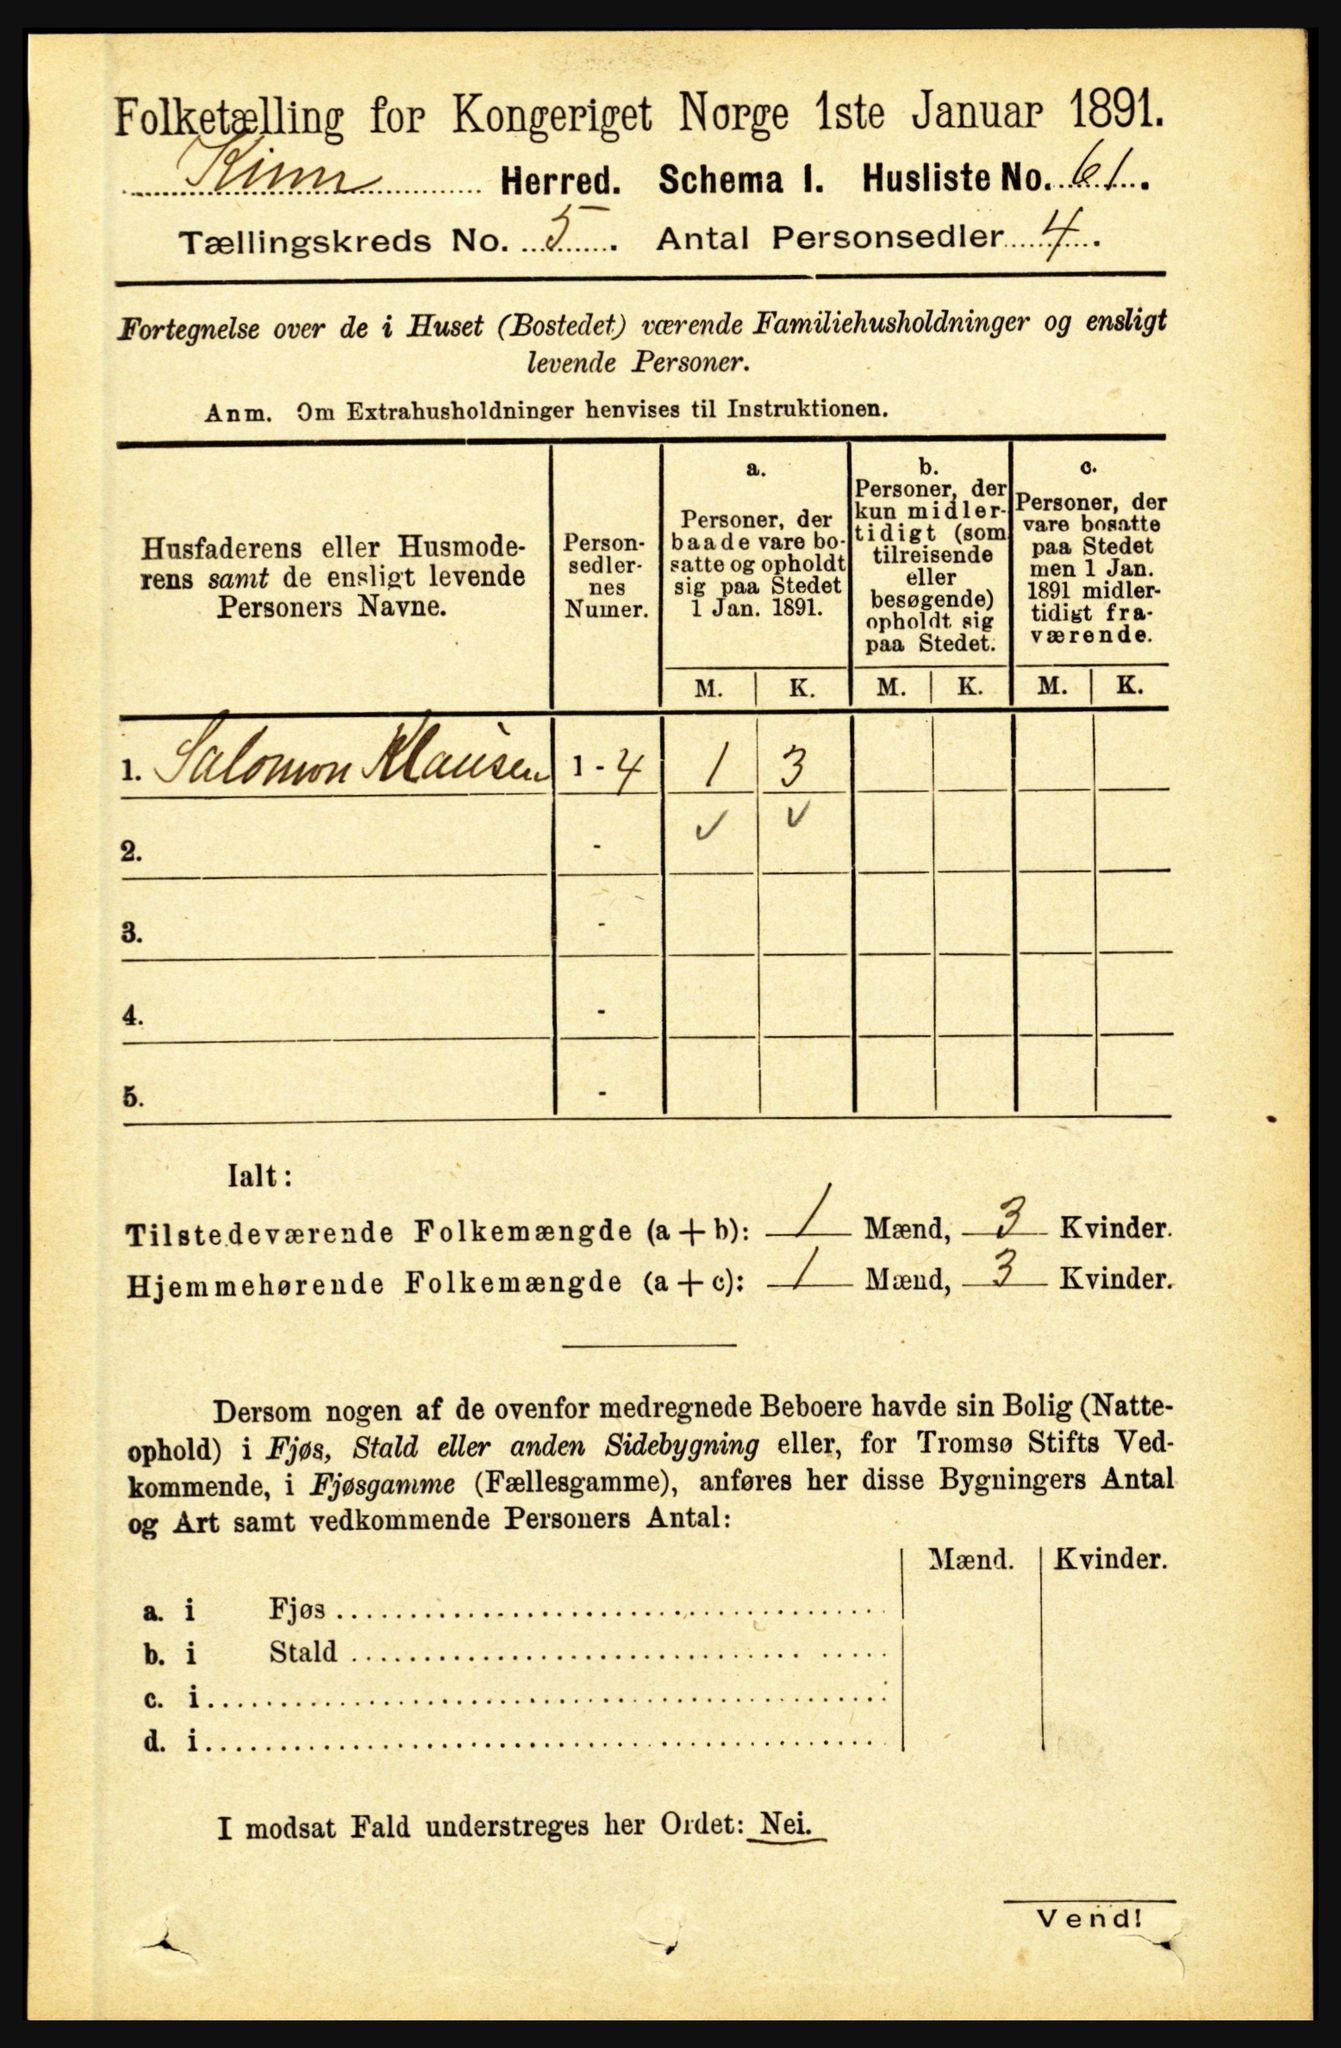 Folketælling for Kongeriget Norge 1ste Januar 1891.
Kinn Herred. Schema I. Husliste No. 61.
Tællingskreds No. 5. Antal Personsedler 4.
Fortegnelse over de i Huset (Bostedet) værende Familiehusholdninger og ensligt
levende Personer.
Anm. Om Extrahusholdninger henvises til Instruktionen.
Husfaderens eller Husmode-
rens samt de ensligt levende
Personers Navne.
Person-
sedler-
nes
Numer.
a.
Personer, der
baade vare bo-
satte og opholdt
sig paa Stedet
1 Jan. 1891.
b.
Personer, der
kun midler-
tidigt (som
tilreisende
eller
besøgende)
opholdt sig
paa Stedet.
c.
Personer, der
vare bosatte
paa Stedet
men 1 Jan.
1891 midler-
tidigt fra-
værende.
M. K. M. K. M. K.
1. Salomon Klausen 1 - 4 1 3
2. - ✓ ✓
3. -
4. -
5. -
Ialt:
Tilstedeværende Folkemængde (a + b): 1 Mænd, 3 Kvinder.
Hjemmehørende Folkemængde (a + c): 1 Mænd, 3 Kvinder.
Dersom nogen af de ovenfor medregnede Beboere havde sin Bolig (Natte-
ophold) i Fjøs, Stald eller anden Sidebygning eller, for Tromsø Stifts Ved-
kommende, i Fjøsgamme (Fællesgamme), anføres her disse Bygningers Antal
og Art samt vedkommende Personers Antal:
Mænd. Kvinder.
a. i Fjøs
b. i Stald
c. i
d. i
I modsat Fald understreges her Ordet: Nei.
Vend!